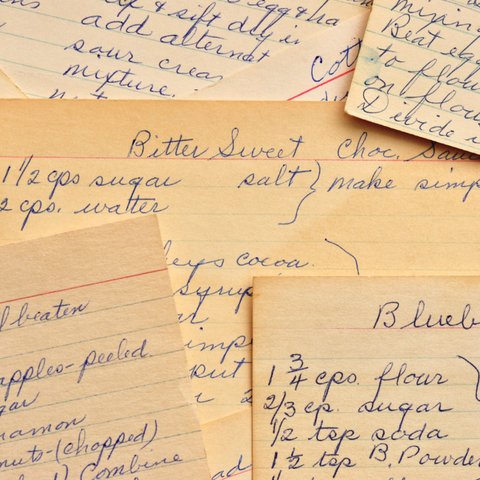 & sift dry in
add alternat
sour crea
mixture.
Cott
Beat egg
to flour
on flou
Divide
Bitter Sweet Choc. Sauc
1 1/2 cps sugar salt } make simp
2 cps. watter
leys cocoa
syrup
imp
put
l beaten
apples-peeled
gar
namon
nuts-(chopped)
Combine
ad
Blueb
1 3/4 cps. flour
2/3 cp. sugar
1/2 tsp soda
1 1/2 tsp B. Powder